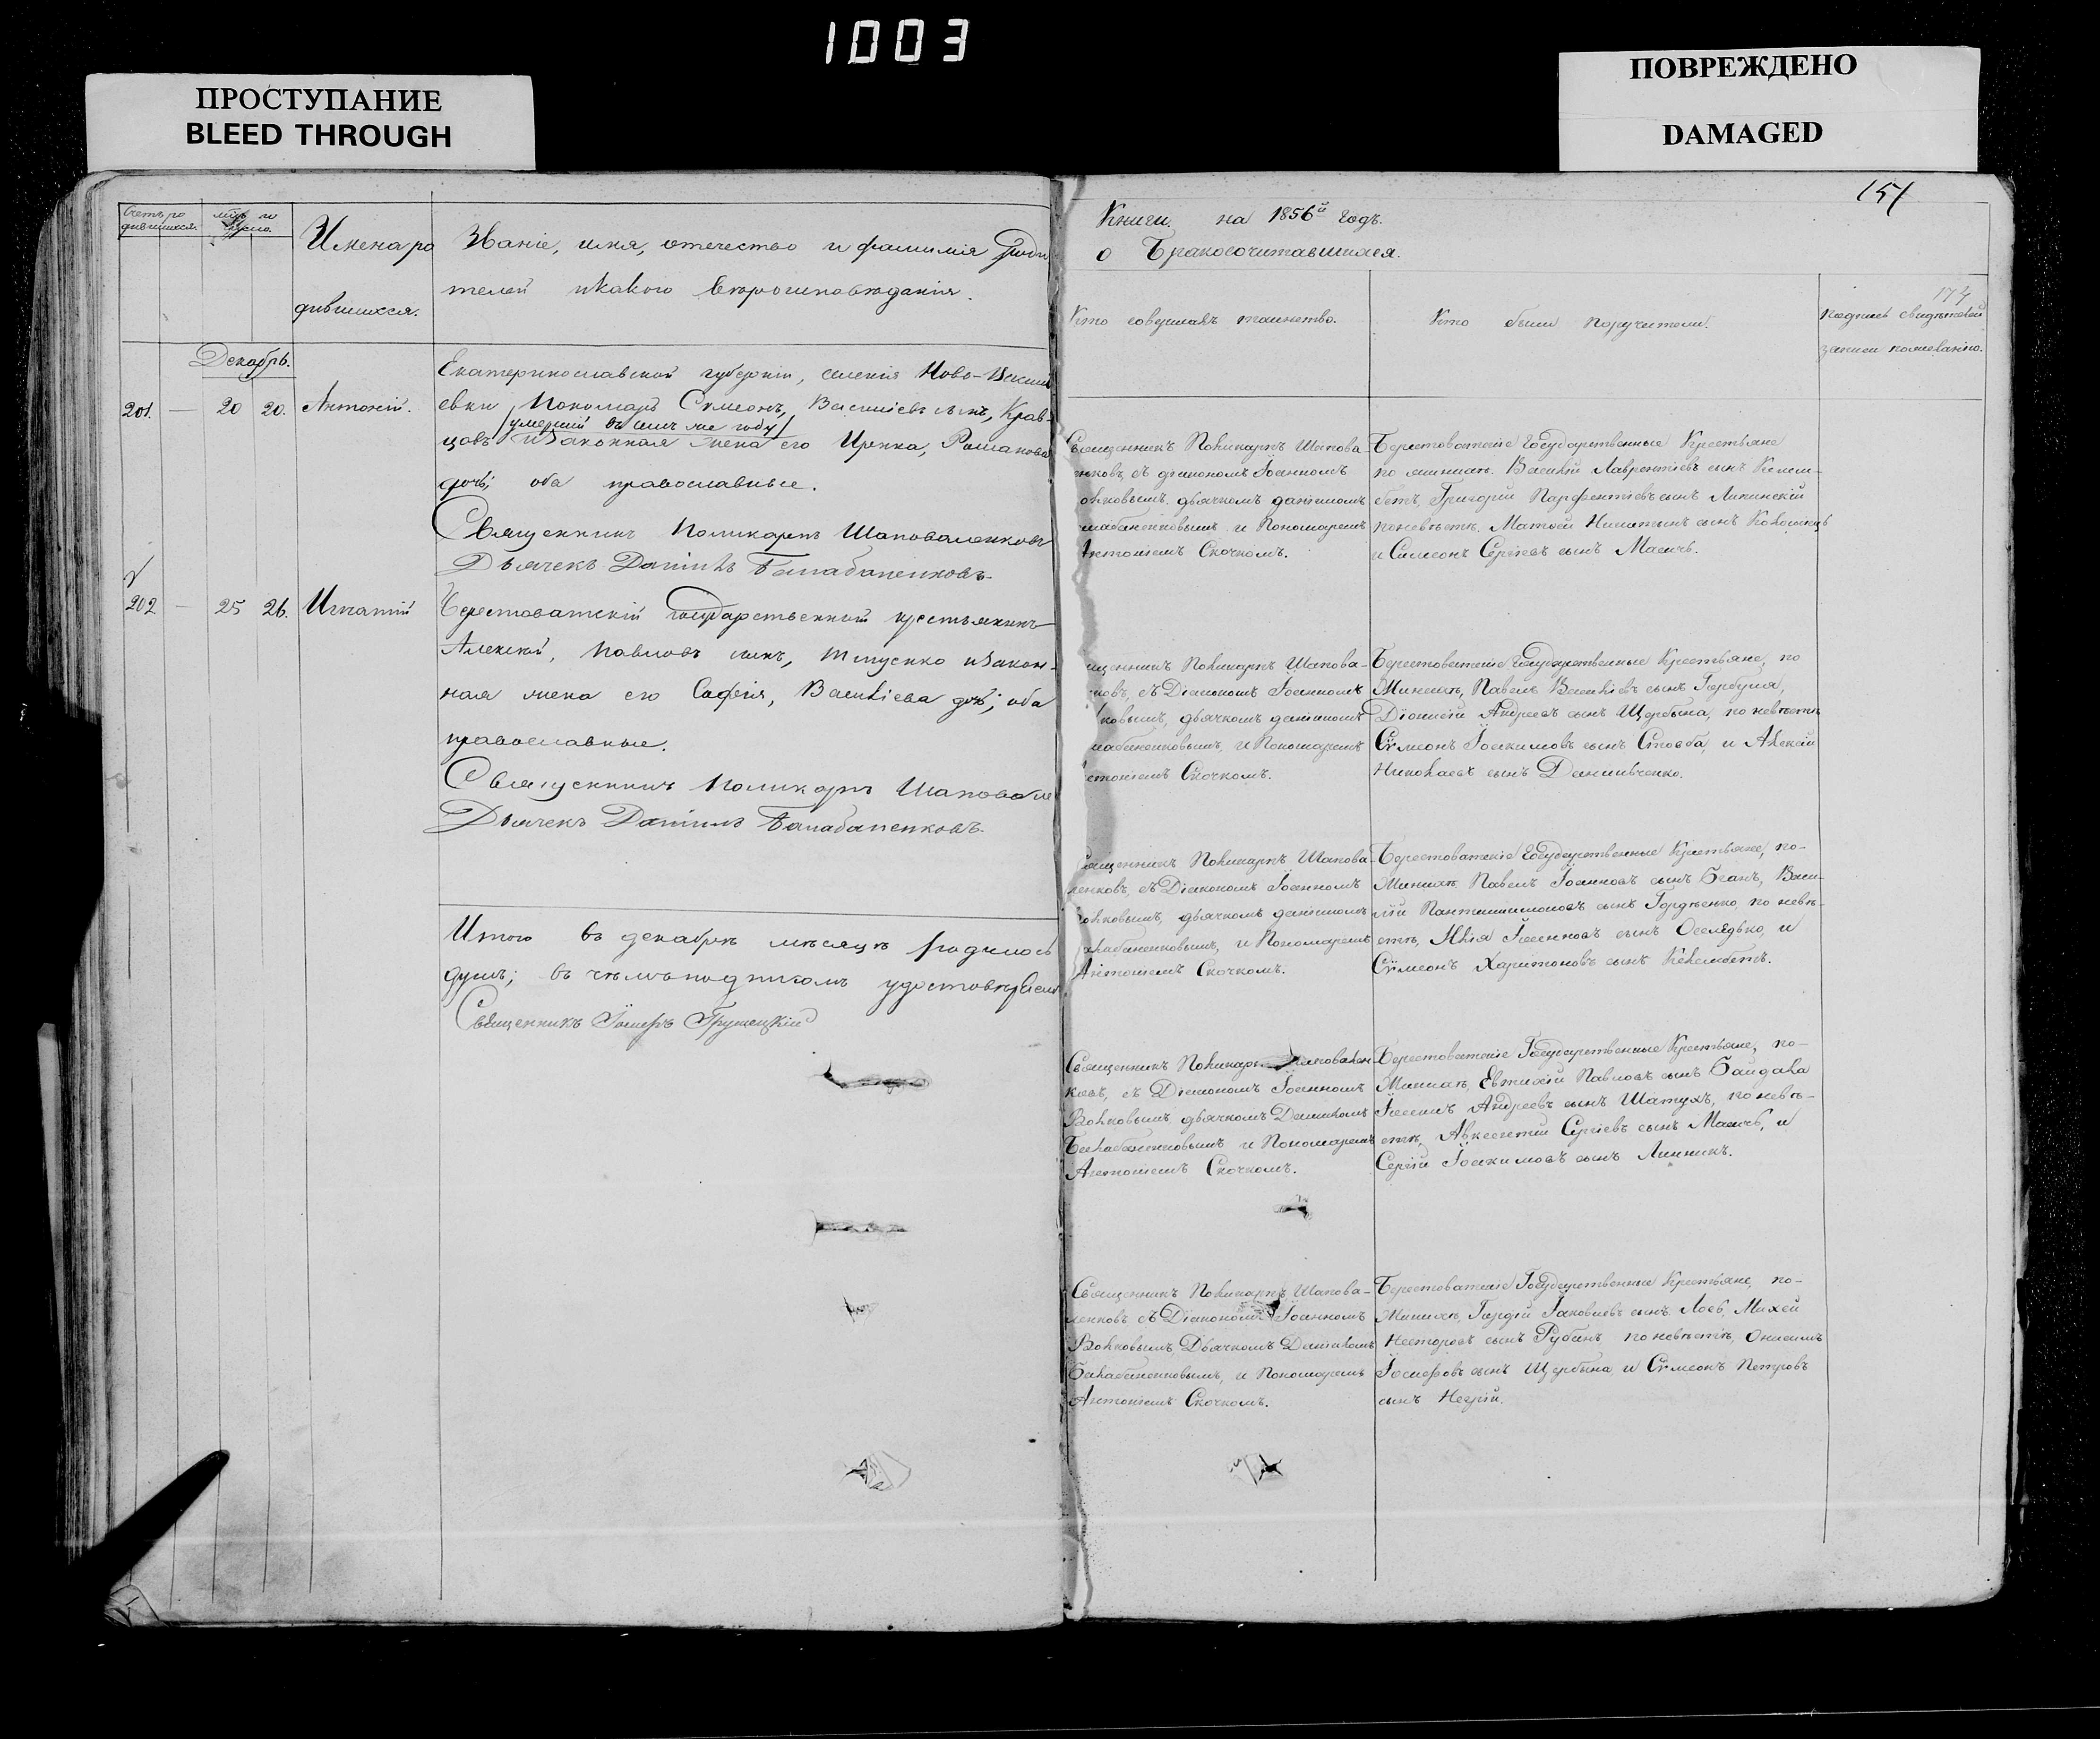 1003
ПРОСТУПАНИЕ
BLEED THROUGH
ПОВРЕЖДЕНО
DAMAGED
Счетъ ро
дившихся.
Имена ро
дившихся.
Званіе, имя, отечество и фамилія роди
телей и какого вѣроисповѣданія.
Декабрь.
201. — 20 20. Антоній.
Екатеринославской губерніи, селенія Ново-
евки Пономарь Сѵмеонъ, Васильевъ сынъ, Крав-
/умершій въ семъ же году/
цовъ и законная жена его Ирина, Романова
дочь; оба православные.
Священникъ Поликарпъ Шаповаленковъ
Дьячекъ Даніилъ Балабаненковъ.
202 — 25 26. Игнатій
Берестоватскій государственный крестьянинъ
Алексей, Павловъ сынъ, и закон-
ная жена его Софія, Василіева дочь; оба
православные.
Священникъ Поликарпъ Шаповале
Дьячекъ Даніилъ Балабаненковъ.
Итого въ декабрѣ мѣсяцѣ родилось
душъ; въ чемъ подписомъ удостовѣряемъ
Священникъ Іосифъ Грушецкій
151
174
Книги. на 1856й годъ.
о Бракосочитавшихся.
Кто совершалъ таинство.
Кто были поручители.
подпись свидѣтелей
записи по желанію.
Священникъ Поликарпъ Шапова-
нковъ, съ діакономъ Іоанномъ
олковымъ, дьячкомъ даніиломъ
лабаненковымъ и Пономаремъ
Антоніемъ Скочкомъ.
Берестоватскіе Государственные Крестьяне
по женихѣ. Василій Лаврентіевъ сынъ Келем-
бетъ, Григорій Парфентіевъ сынъ Липинскій
по невѣстѣ, Матѳей Никитинъ сынъ
и Симеонъ Сергіевъ сынъ Маличъ.
щенникъ Поликарпъ Шапова-
нковъ, съ Діакономъ Іоанномъ
ковымъ, дьячкомъ даніиломъ
лабаненковымъ, и Пономаремъ
нтоніемъ Скочкомъ.
Берестоватскіе Государственные Крестьяне, по
Женихѣ, Павелъ Василіевъ сынъ
Діонисій Андреевъ сынъ Щербина, по невѣстѣ
Сѵмеонъ Іоакимовъ сынъ и Алексей
Николаевъ сынъ Данильченко.
Священникъ Поликарпъ Шапова-
ленковъ, съ Діакономъ Іоанномъ
олковымъ, дьячкомъ даніиломъ
алабаненковымъ, и Пономаремъ
Антоніемъ Скочкомъ.
Берестоватскіе Государственные Крестьяне, по-
Женихѣ Павелъ Іоанновъ сынъ Васи-
лій Пантелимоновъ сынъ Гордѣенко, по невѣ-
стѣ, Илія Іоанновъ сынъ Оселедько, и
Сѵмеонъ Харитоновъ сынъ Келембетъ.
Священникъ Поликарпъ Шаповален
ковъ, съ Діакономъ Іоанномъ
Волковымъ, дьячкомъ Даніиломъ
Балабаненковымъ и Пономаремъ
Антоніемъ Скочкомъ.
Берестоватскіе Государственные Крестьяне, по-
Женихѣ, Евтихій Павловъ сынъ Байдала
Андреевъ сынъ Шатухъ, по невѣ-
стѣ, Авксентій Сергіевъ сынъ Маличъ, и
Сергій Іоакимовъ сынъ Линникъ.
Священникъ Поликарпъ Шапова-
ленковъ съ Діакономъ Іоанномъ
Волковымъ, Дьячкомъ Даніиломъ
Балабаненковымъ, и Пономаремъ
Антоніемъ Скочкомъ.
Берестоватскіе Государственные Крестьяне, по-
Женихѣ, Гордій Іаковлевъ сынъ Михей
Несторовъ сынъ Рубанъ, по невѣстѣ, Онисимъ
Іосифовъ сынъ Щербина, и Сѵмеонъ Петровъ
сынъ Негрій.